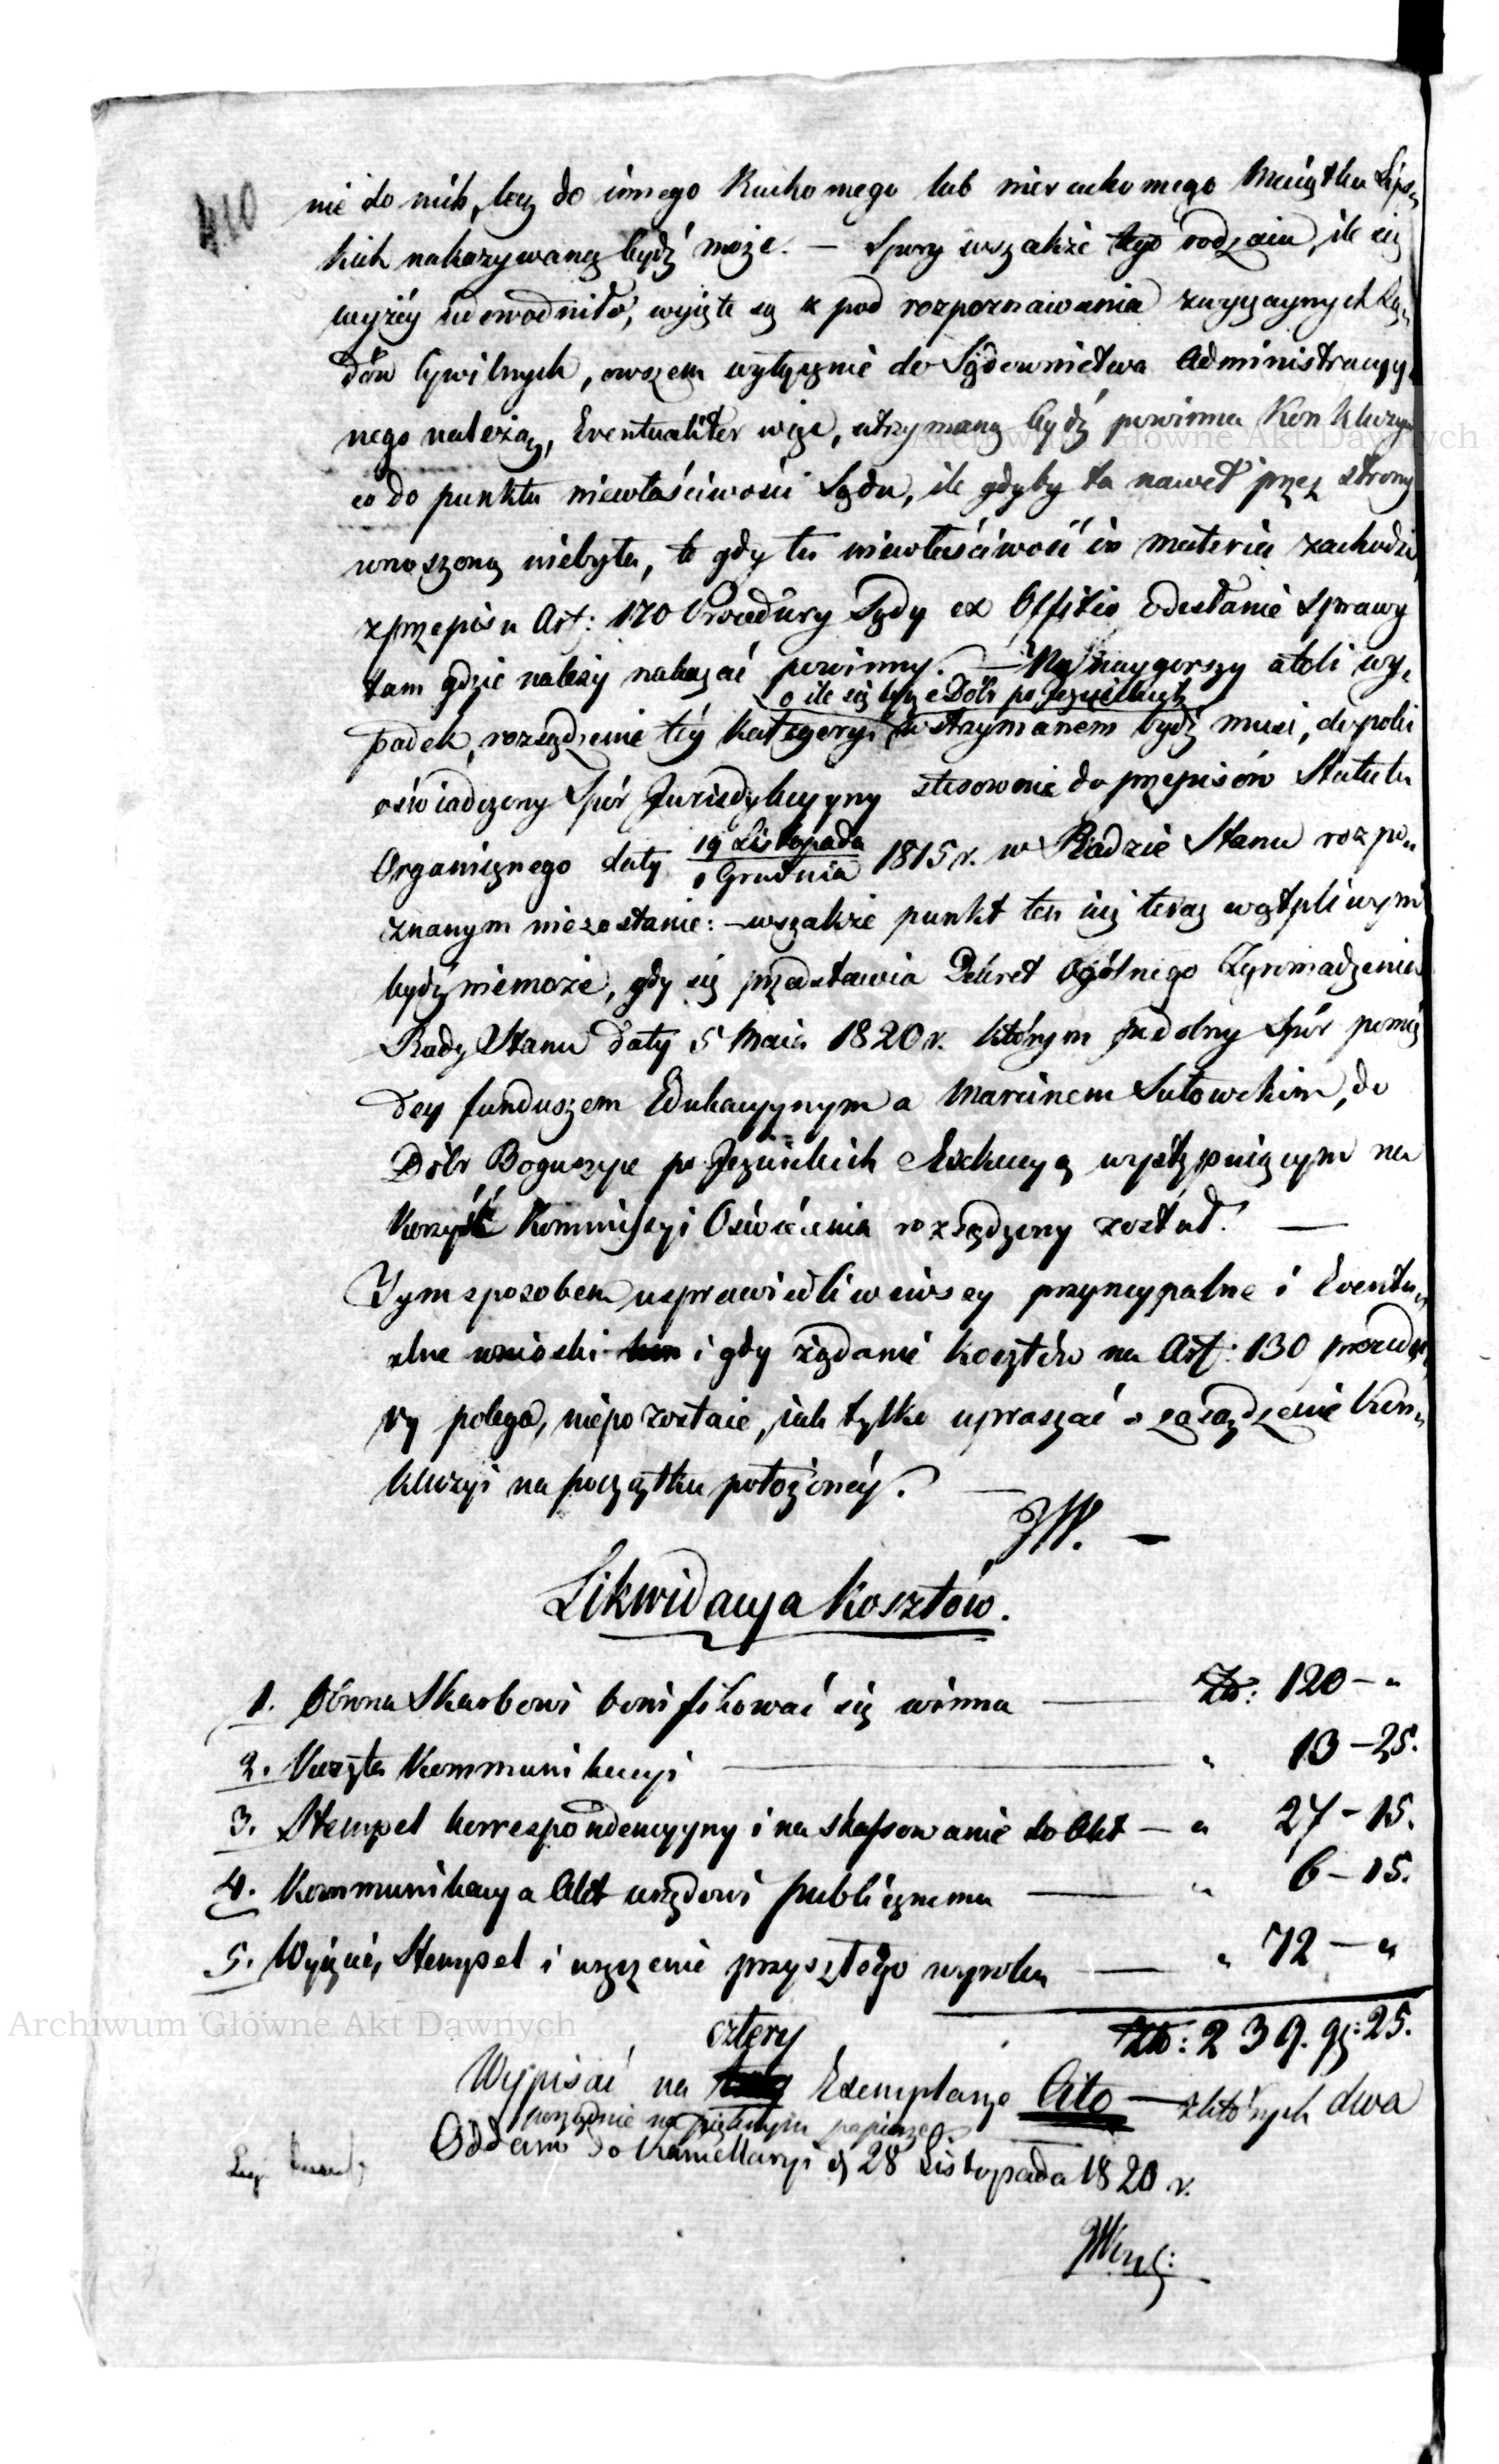 410
nie do nich, lecz do innego Ruchomego lub nieruchomego Maiątku Lips„
kich nakazywaną bydź może. — Spory wszakże tego rodzaiu, ile się
wyżéy udowodniło, wyięte są z pod rozpoznawania zwyczaynych Są„
dów Cywilnych, owszem wyłącznie do Sądownictwa Administracyy„
nego należą, Eventualiter więc, utrzymaną bydź powinna Konkluzya
co do punktu niewłaściwości Sądu, ile gdyby ta nawet przez strony
wnoszoną niebyła, to gdy tu niewłaściwość in materia zachodzi,
z przepisu Art: 170 Procedury Sądy ex Officio odesłanie Sprawy
tam gdzie należy nakazać powinny. — Na naygorszy atoli wy„
o ile się tycze Dóbr po Jezuickich
padek, rozsądzenie téy kategoryi wstrzymanem bydź musi, dopóki
oświadczony Spór Jurisdykcyyny stosownie do przepisów Statutu
Organicznego daty 19 Listopada / 1 Grudnia 1815 r. w Radzie Stanu rozpo„
znanym niezostanie: — wszakże punkt ten iuż teraz wątpliwym
bydź niemoże, gdy się przedstawia Dekret Ogólnego Zgromadzenia
Rady Stanu daty 5 Maia 1820 r. którym podobny Spór pomię
dzy funduszem Edukacyynym a Marcinem Sutowskim, do
Dóbr Boguszyce po Jezuickich Exekucyą występuiącym na
korzyść Kommissyi Oświecenia rozsądzony został. —
Tym sposobem usprawiedliwiwszy pryncypalne i Eventu„
alne wnioski i gdy żądanie kosztów na Art: 130 procedu„
ry polega, niepozostaie, iak tylko upraszać o zasądzenie Kon„
kluzyi na początku położonéy. —
JW. —
Likwidacya Kosztów.
1. Główna Skarbowi bonifikować się winna — Zł: 120 – „
2. Koszta Kommunikacyi — „ 13 – 25.
3. Stempel korrespondencyyny i na skassowanie do Akt — „ 27 – 15.
4. Kommunikacya Akt urzędowi publicznemu — „ 6 – 15.
5. Wyięcie, Stempel i wręczenie przyszłego wyroku — „ 72 – „
Zł: 239. gr: 25.
cztery
Wypisać na Exemplarze Cito — z których dwa
porządnie na pięknym papierze
Oddano do Kancellaryi d. 28 Listopada 1820 r.